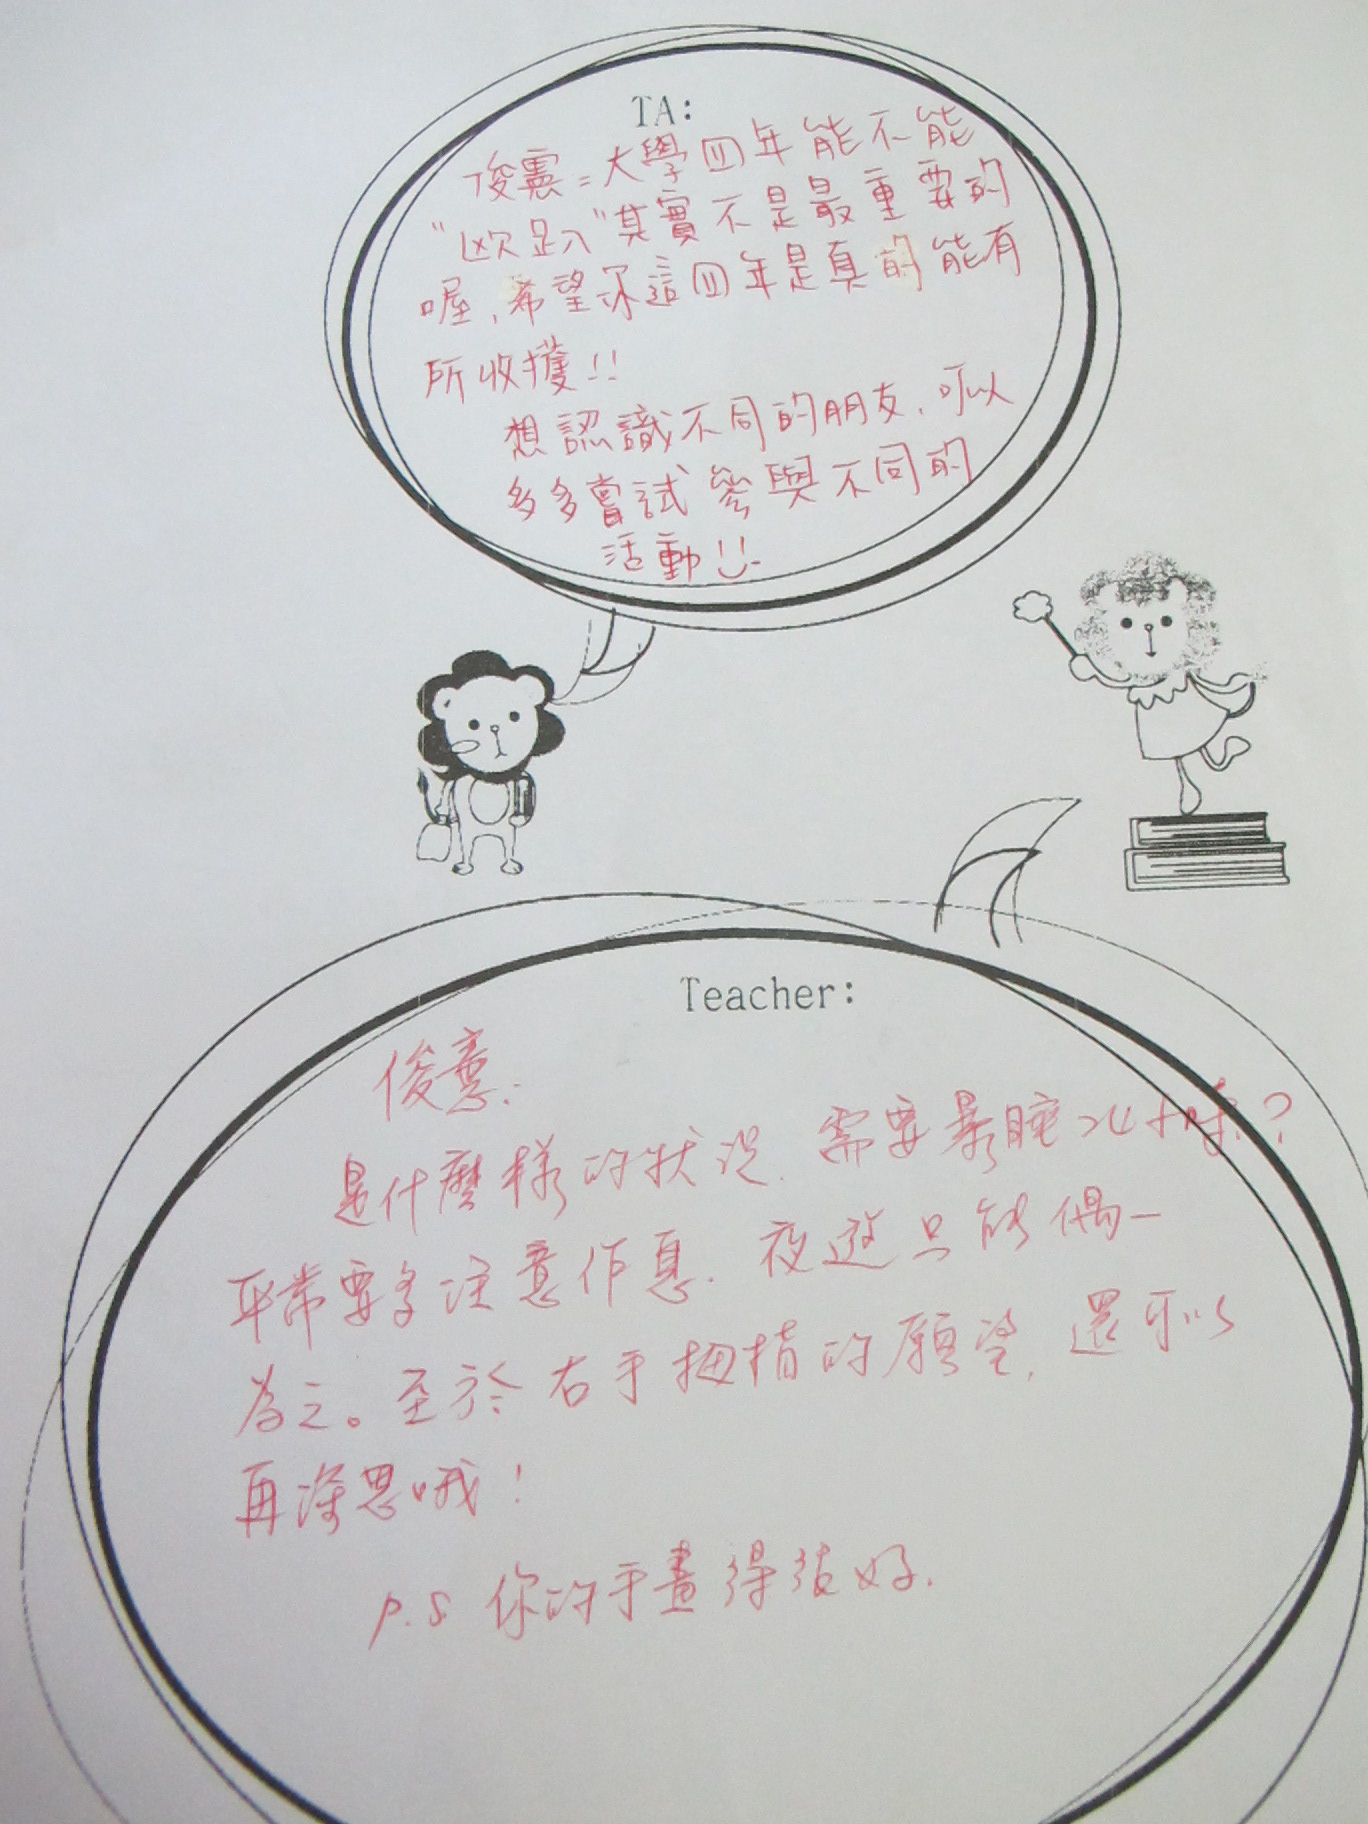 TA:
俊憲:大學四年能不能
"歐趴"其實不是最重要的
喔,希望你這四年是真的能有
所收獲!!
想認識不同的朋友,可以
多多嘗試參與不同的
活動!!
Teacher:
俊憲:
是什麼樣的狀況,需要暴睡 小時?
平常要多注意作息,夜遊只能偶一
為之。至於右手拇指的願望,還可以
再深思哦!
P.S 你的手畫得很好.